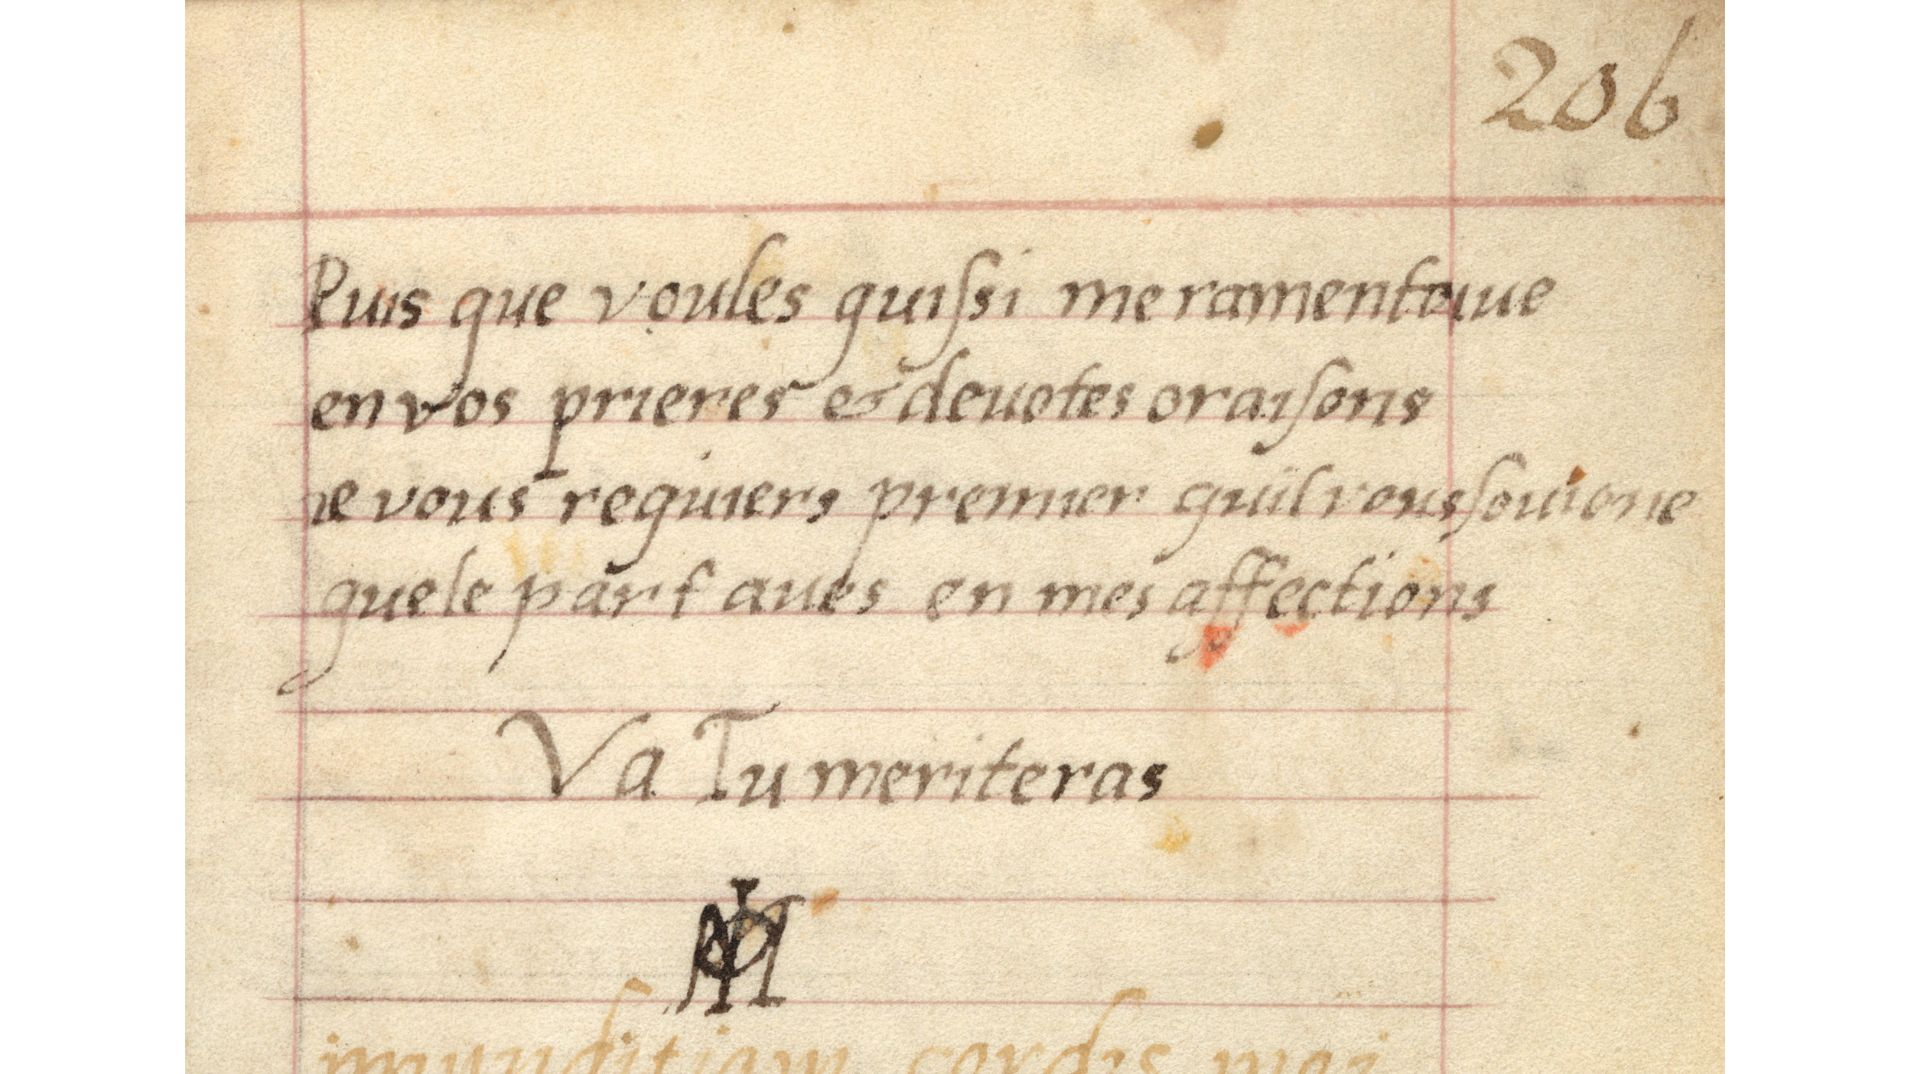 206
Puis que voules quissi me ramenteiue
en vos prieres & deuotes oraisons
ie vous requiers premier quil vous souuiene
quele part aues en mes affections
Va Tu meriteras
immunditiam cordis mei